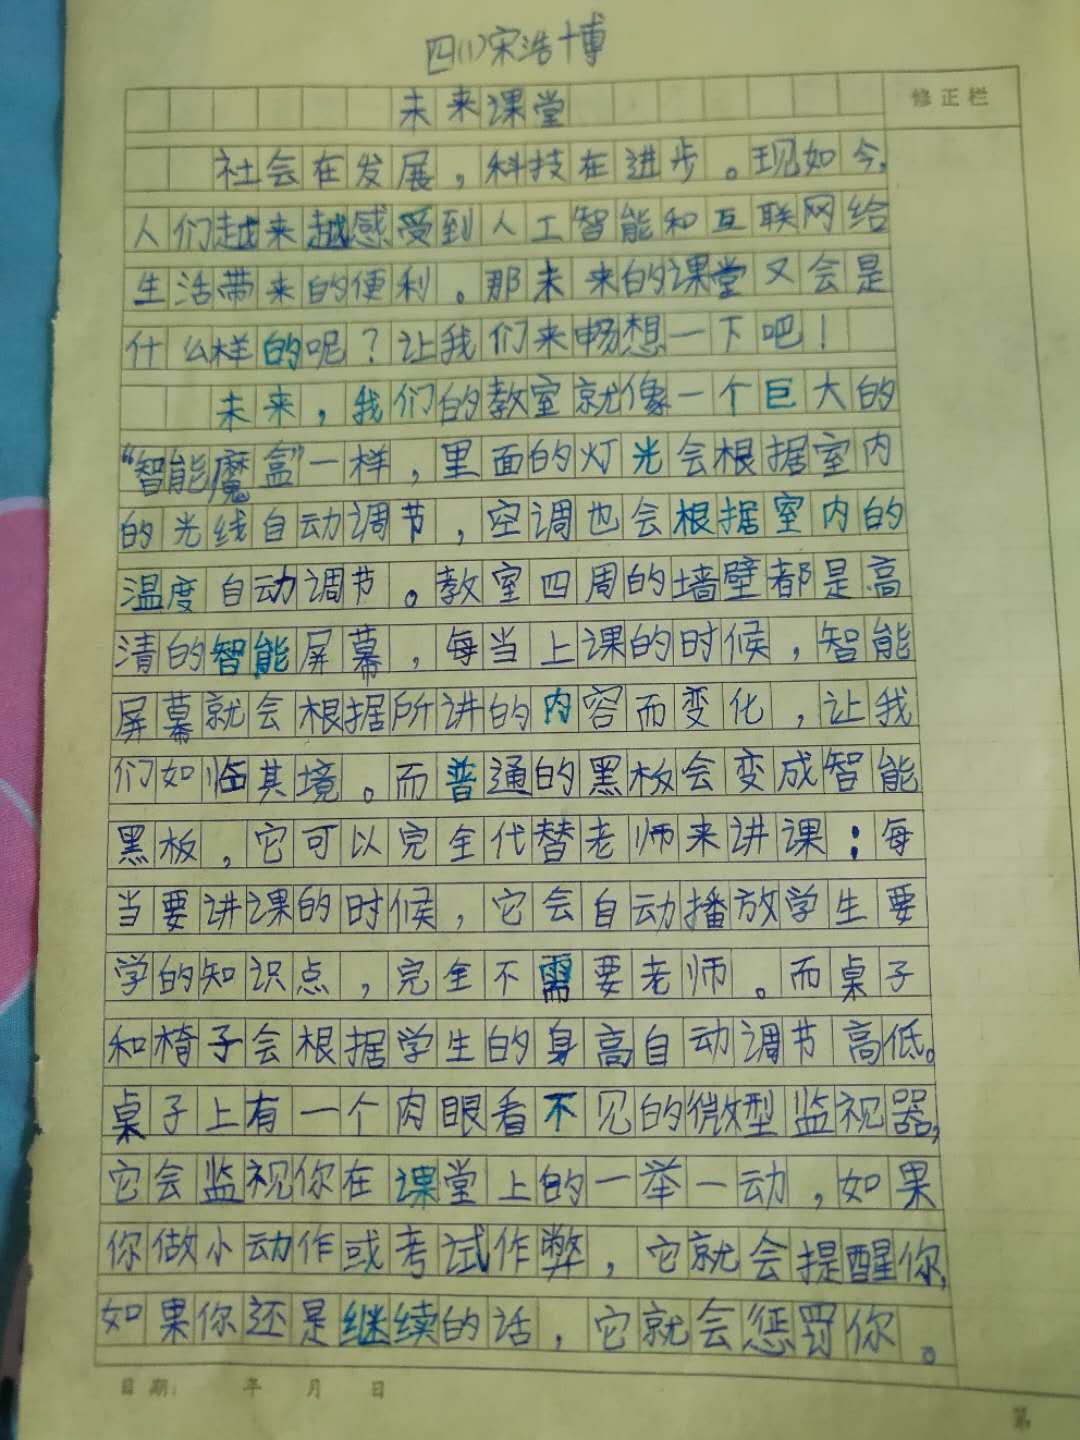 四(1)宋浩博
未来课堂
修正栏
社会在发展，科技在进步。现如今，
人们越来越感受到人工智能和互联网给
生活带来的便利。那未来的课堂又会是
什么样的呢？让我们来畅想一下吧！
未来，我们的教室就像一个巨大的
“智能魔盒”一样，里面的灯光会根据室内
的光线自动调节，空调也会根据室内的
温度自动调节。教室四周的墙壁都是高
清的智能屏幕，每当上课的时候，智能
屏幕就会根据所讲的内容而变化，让我
们如临其境。而普通的黑板会变成智能
黑板，它可以完全代替老师来讲课：每
当要讲课的时候，它会自动播放学生要
学的知识点，完全不需要老师。而桌子
和椅子会根据学生的身高自动调节高低。
桌子上有一个肉眼看不见的微型监视器，
它会监视你在课堂上的一举一动，如果
你做小动作或考试作弊，它就会提醒你，
如果你还是继续的话，它就会惩罚你。
日期： 年 月 日
第